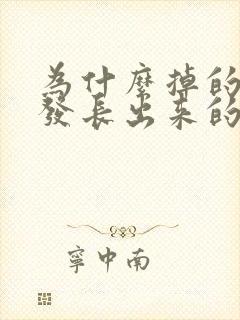 為什麼掉的
發長出來的
寧中南